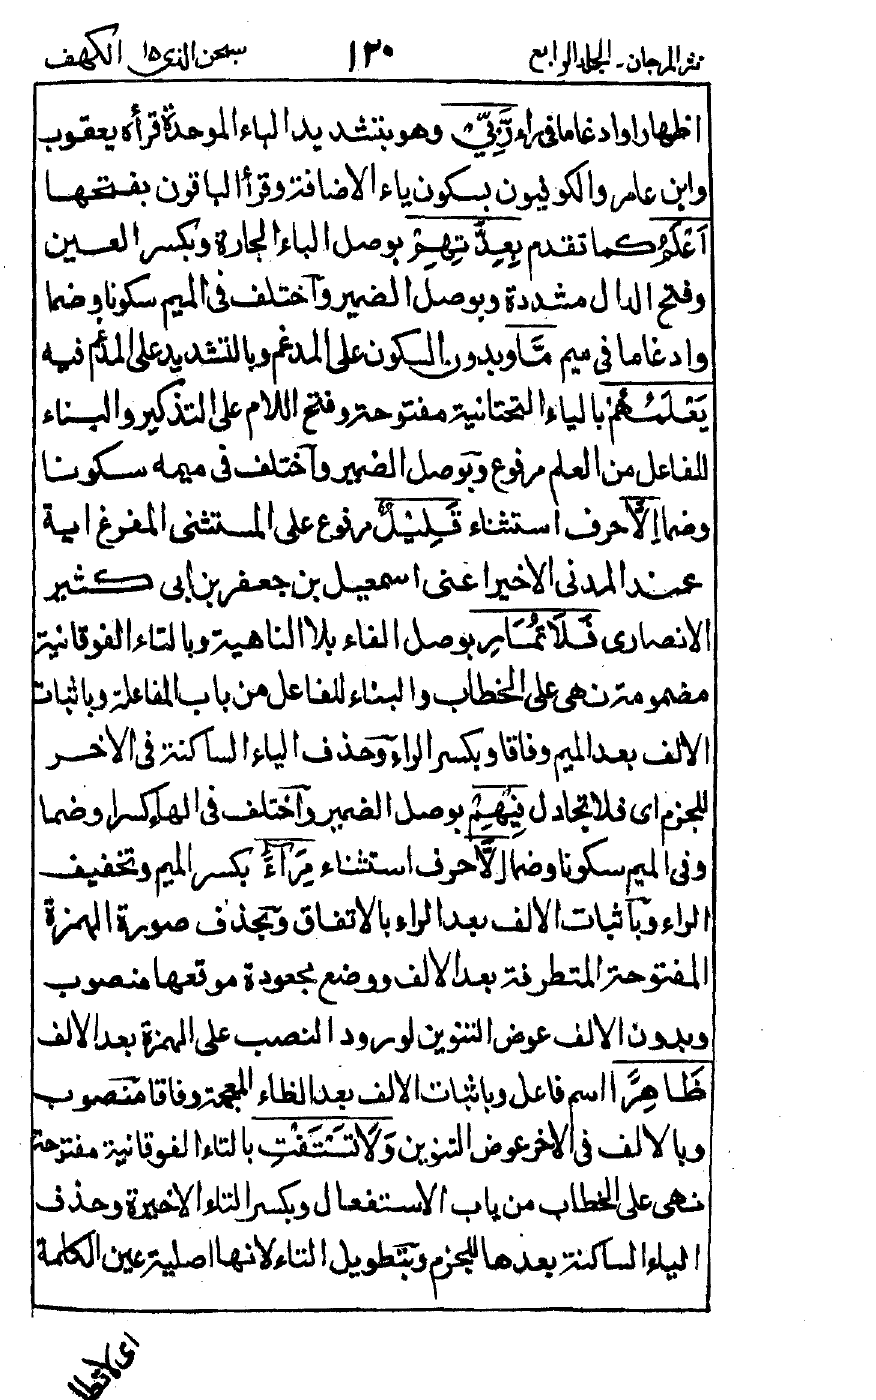 نثر المرجان - المجلد الرابع ١٣٠ سبحن الذى ١٥ الكهف
اظهارا وادغاما فى راء رَّبِّىْ وهو بتشديد الباء الموحدة قرأه يعقوب
وابن عامر والكوفيون بسكون ياء الاضافة وقرأ الباقون بفتحها
اَعْلَمُ كما تقدم بِعِدَّتِهِمْ بوصل الباء الجارة وبكسر العين
وفتح الدال مشددة وبوصل الضمير وآختلف فى الميم سكونا وضما
وادغاما فى ميم مَّا وبدون السكون على المدغم وبالتشديد على المدغم فيه
يَعْلَمُهُمْ بالياء التحتانية مفتوحة وفتح اللام على التذكير والبناء
للفاعل من العلم مرفوع وبوصل الضمير وآختلف فى ميمه سكونا
وضما اِلَّا حرف استثناء قَلِيْلٌ مرفوع على المستثنى المفرغ اية
عند المدنى الاخير اعنى اسمعيل بن جعفر بن ابى كثير
الانصارى فَلَا تُمَارِ بوصل الفاء بلا الناهية وبالتاء الفوقانية
مضمومة نهى على الخطاب والبناء للفاعل من باب المفاعلة وباثبات
الالف بعد الميم وفاقا وبكسر الراء وحذف الياء الساكنة فى الاخر
للجزم اى فلا تجادل فِيْهِمْ بوصل الضمير وآختلف فى الهاء كسرا وضما
وفى الميم سكونا وضما اِلَّا حرف استثناء مِرَآءً بكسر الميم وتخفيف
الراء وبآثبات الالف بعد الراء بالاتفاق وبحذف صورة الهمزة
المفتوحة المتطرفة بعد الالف ووضع مجعودة موقعها منصوب
وبدون الالف عوض التنوين لورود النصب على الهمزة بعد الالف
ظَاهِرًا اسم فاعل وباثبات الالف بعد الظاء المعجمة وفاقا منصوب
وبالالف فى الاخر عوض التنوين وَلَا تَسْتَفْتِ بالتاء الفوقانية مفتوحة
نهى على الخطاب من باب الاستفعال وبكسر التاء الاخيرة وحذف
الياء الساكنة بعدها للجزم وبتطويل التاء لانها اصلية عين الكلمة
اى لا تطل